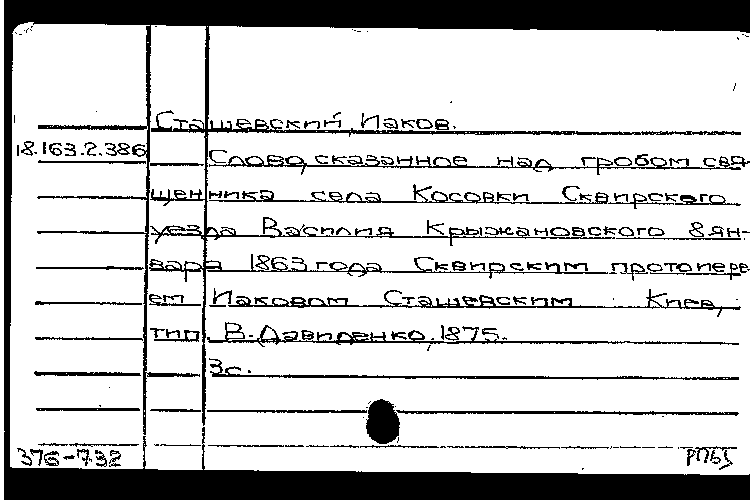 Сташевский, Иаков.
18.163.2.386 Слово, сказанное над гробом свя-
щенника села Косовки Сквирского
уезда Василия Крыжановского 8 ян-
варя 1863 года Сквирским протоиере
ем Иаковом Сташевским Киев,
тип. В. Давиденко, 1875.
3с.
376-732